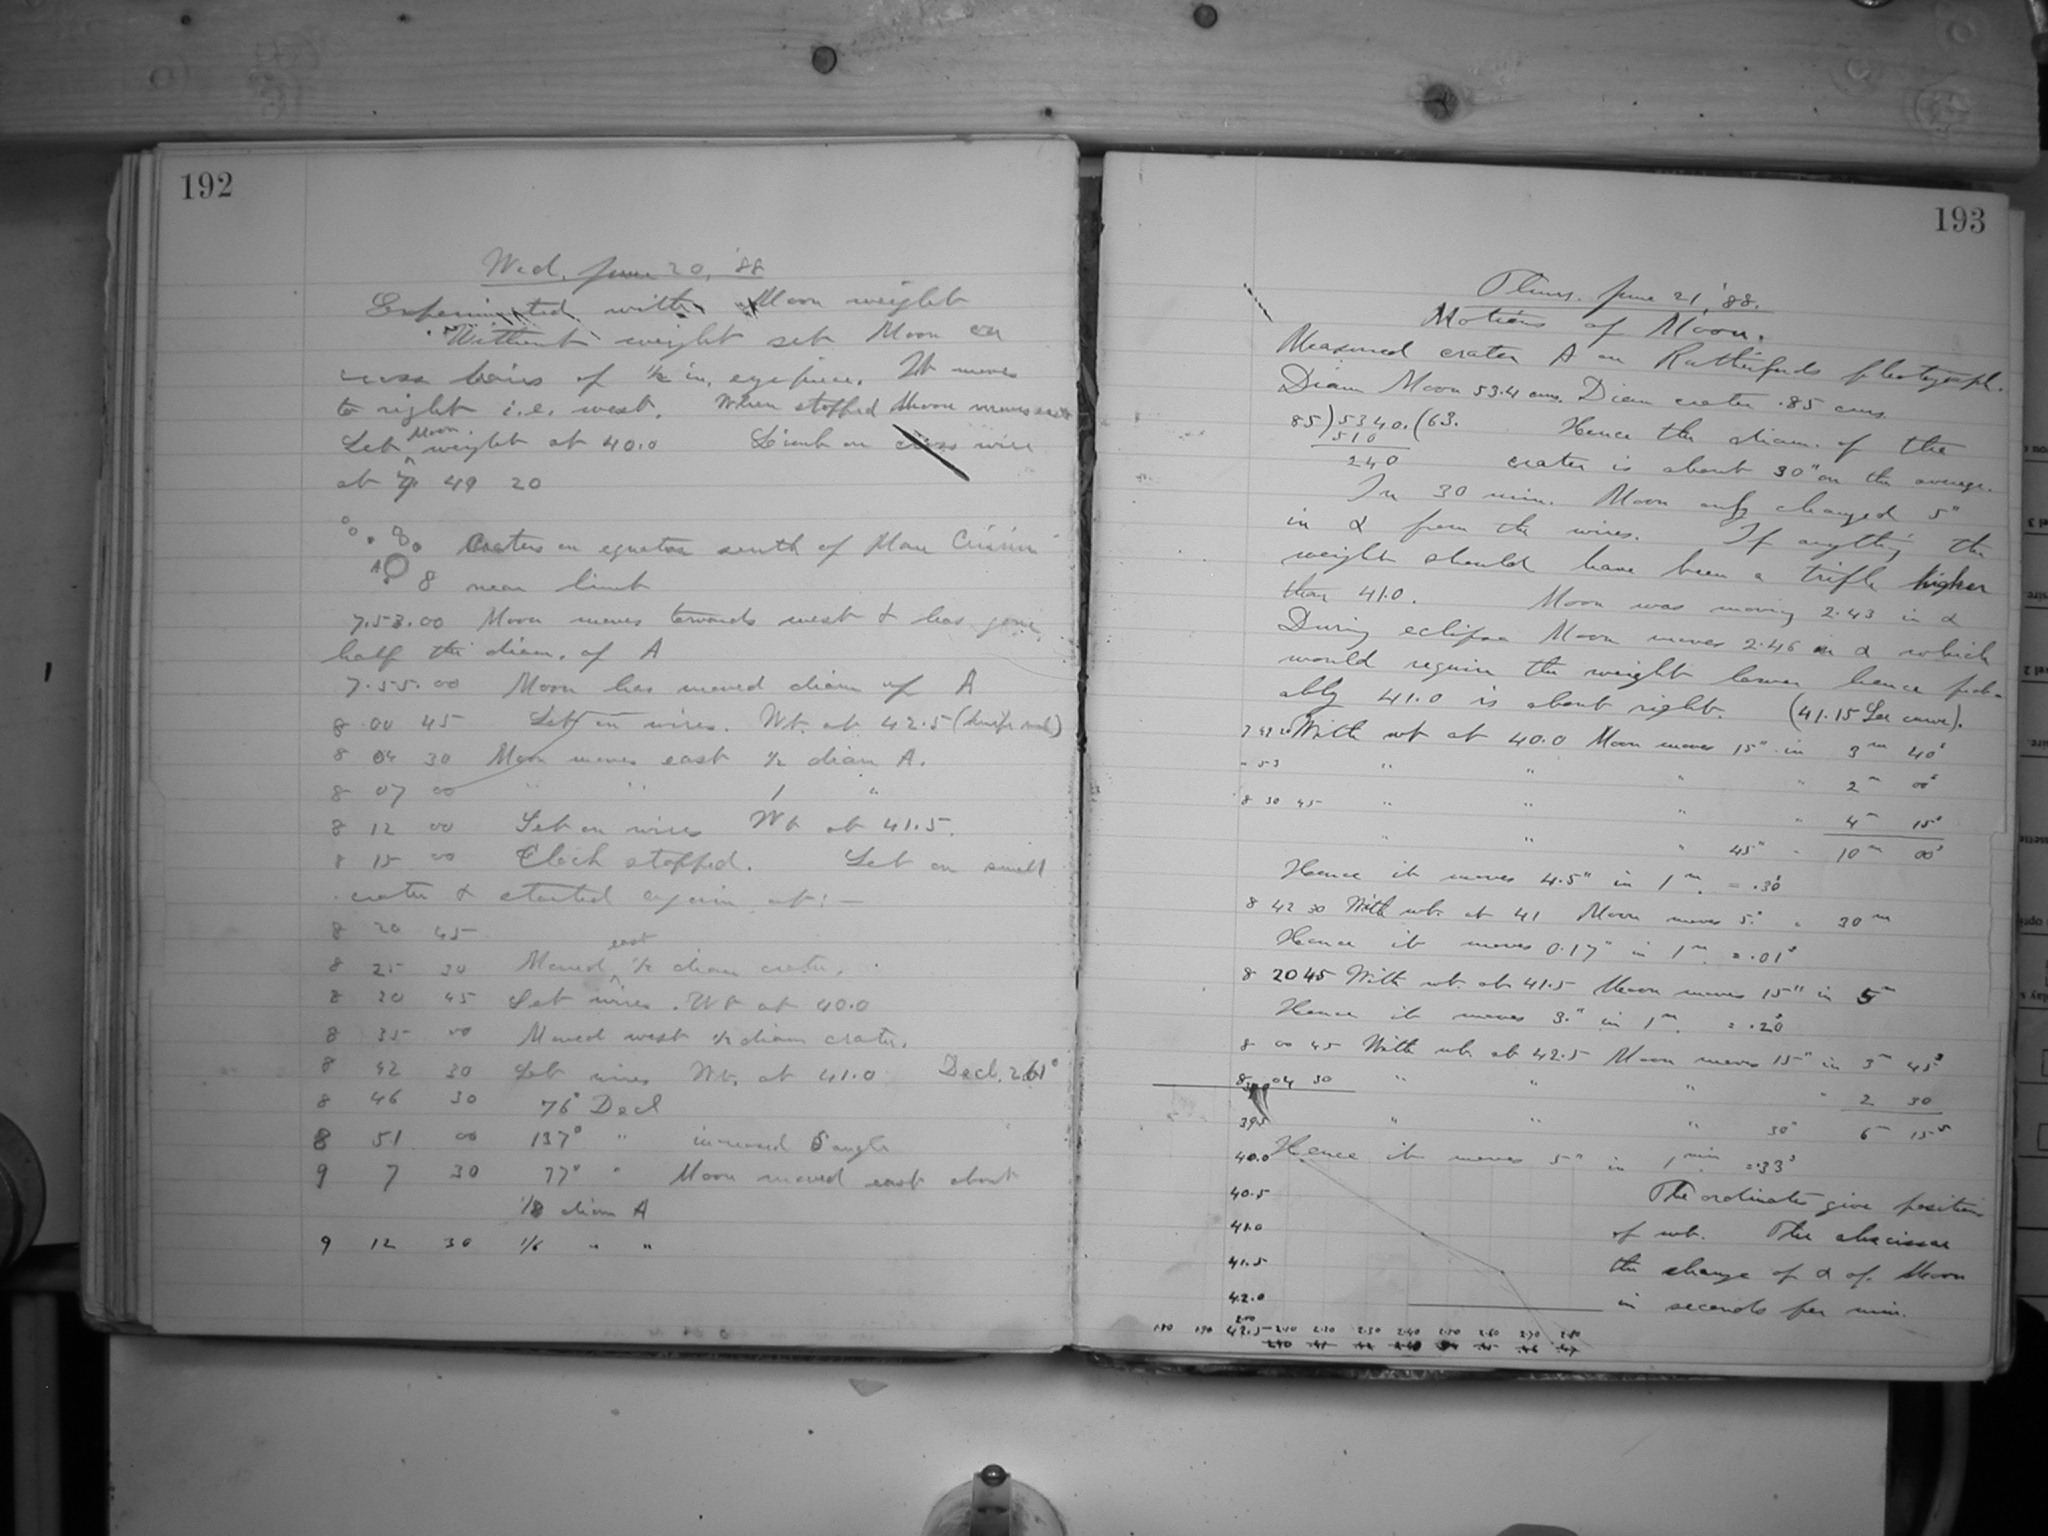 192
Wed. June 20, '88
Experimented with Moon weight
Without weight set Moon on
cross hairs of ½ in. eyepiece. It moves
to right i.e. west. When stopped Moon moves
Set Moon weight at 40.0 Limb on cross wire
at 7 49 20
Craters on equator south of Mare Crisium
A near limb
7.53.00 Moon moves towards west & has gone
half the diam. of A
7.55.00 Moon has moved diam of A
8 00 45 Set on wires. Wt. at 42.5
8 04 30 Moon moves east ½ diam A.
8 07 00 " " 1 "
8 12 00 Set on wires Wt at 41.5.
8 15 00 Clock stopped. Set on small
crater & started again at:—
8 20 45
8 25 30 Moved east ½ diam crater.
8 30 45 Set wires. Wt at 40.0
8 35 00 Moved west ½ diam crater.
8 42 30 Set wires Wt. at 41.0 Decl. 261°
8 46 30 76° Decl
8 51 00 137° " increased S angle
9 7 30 77° " Moon moved east about
1/8 diam A
9 12 30 1/6 " "
193
Thurs. June 21, '88.
Motions of Moon.
Measured crater A on Rutherfurds photograph.
Diam Moon 53.4 cms. Diam crater .85 cms.
85)5340.(63. Hence the diam. of the
510
240 crater is about 30" on the average.
In 30 min. Moon only changed 5"
in α from the wires. If anything the
weight should have been a trifle higher
than 41.0. Moon was moving 2.43 in α
During eclipse Moon moves 2.46 in α which
would require the weight lower hence prob-
ably 41.0 is about right. (41.15 See curve).
7 49 20 With wt at 40.0 Moon moves 15" in 3m 40s
" 53 " " " " 2m 00s
8 30 45 " " " " 4m 15s
" " " 45" " 10m 00s
Hence it moves 4.5" in 1m. = .30s
8 42 30 With wt. at 41 Moon moves 5." " 30m
Hence it moves 0.17" in 1m. = .01s
8 20 45 With wt. at 41.5 Moon moves 15" in 5m
Hence it moves 3." in 1m. = .20s
8 00 45 With wt. at 42.5 Moon moves 15" in 3m 45s
8 04 30 " " " " 2 30
39.5 " " " 30" 6m 15s
40.0 Hence it moves 5" in 1min = .33s
40.5 The ordinates give position
41.0 of wt. The abscissae
41.5 the change of α of Moon
42.0 in seconds per min.
42.5 1.80 1.90 2.00 2.10 2.20 2.30 2.40 2.50 2.60 2.70 2.80